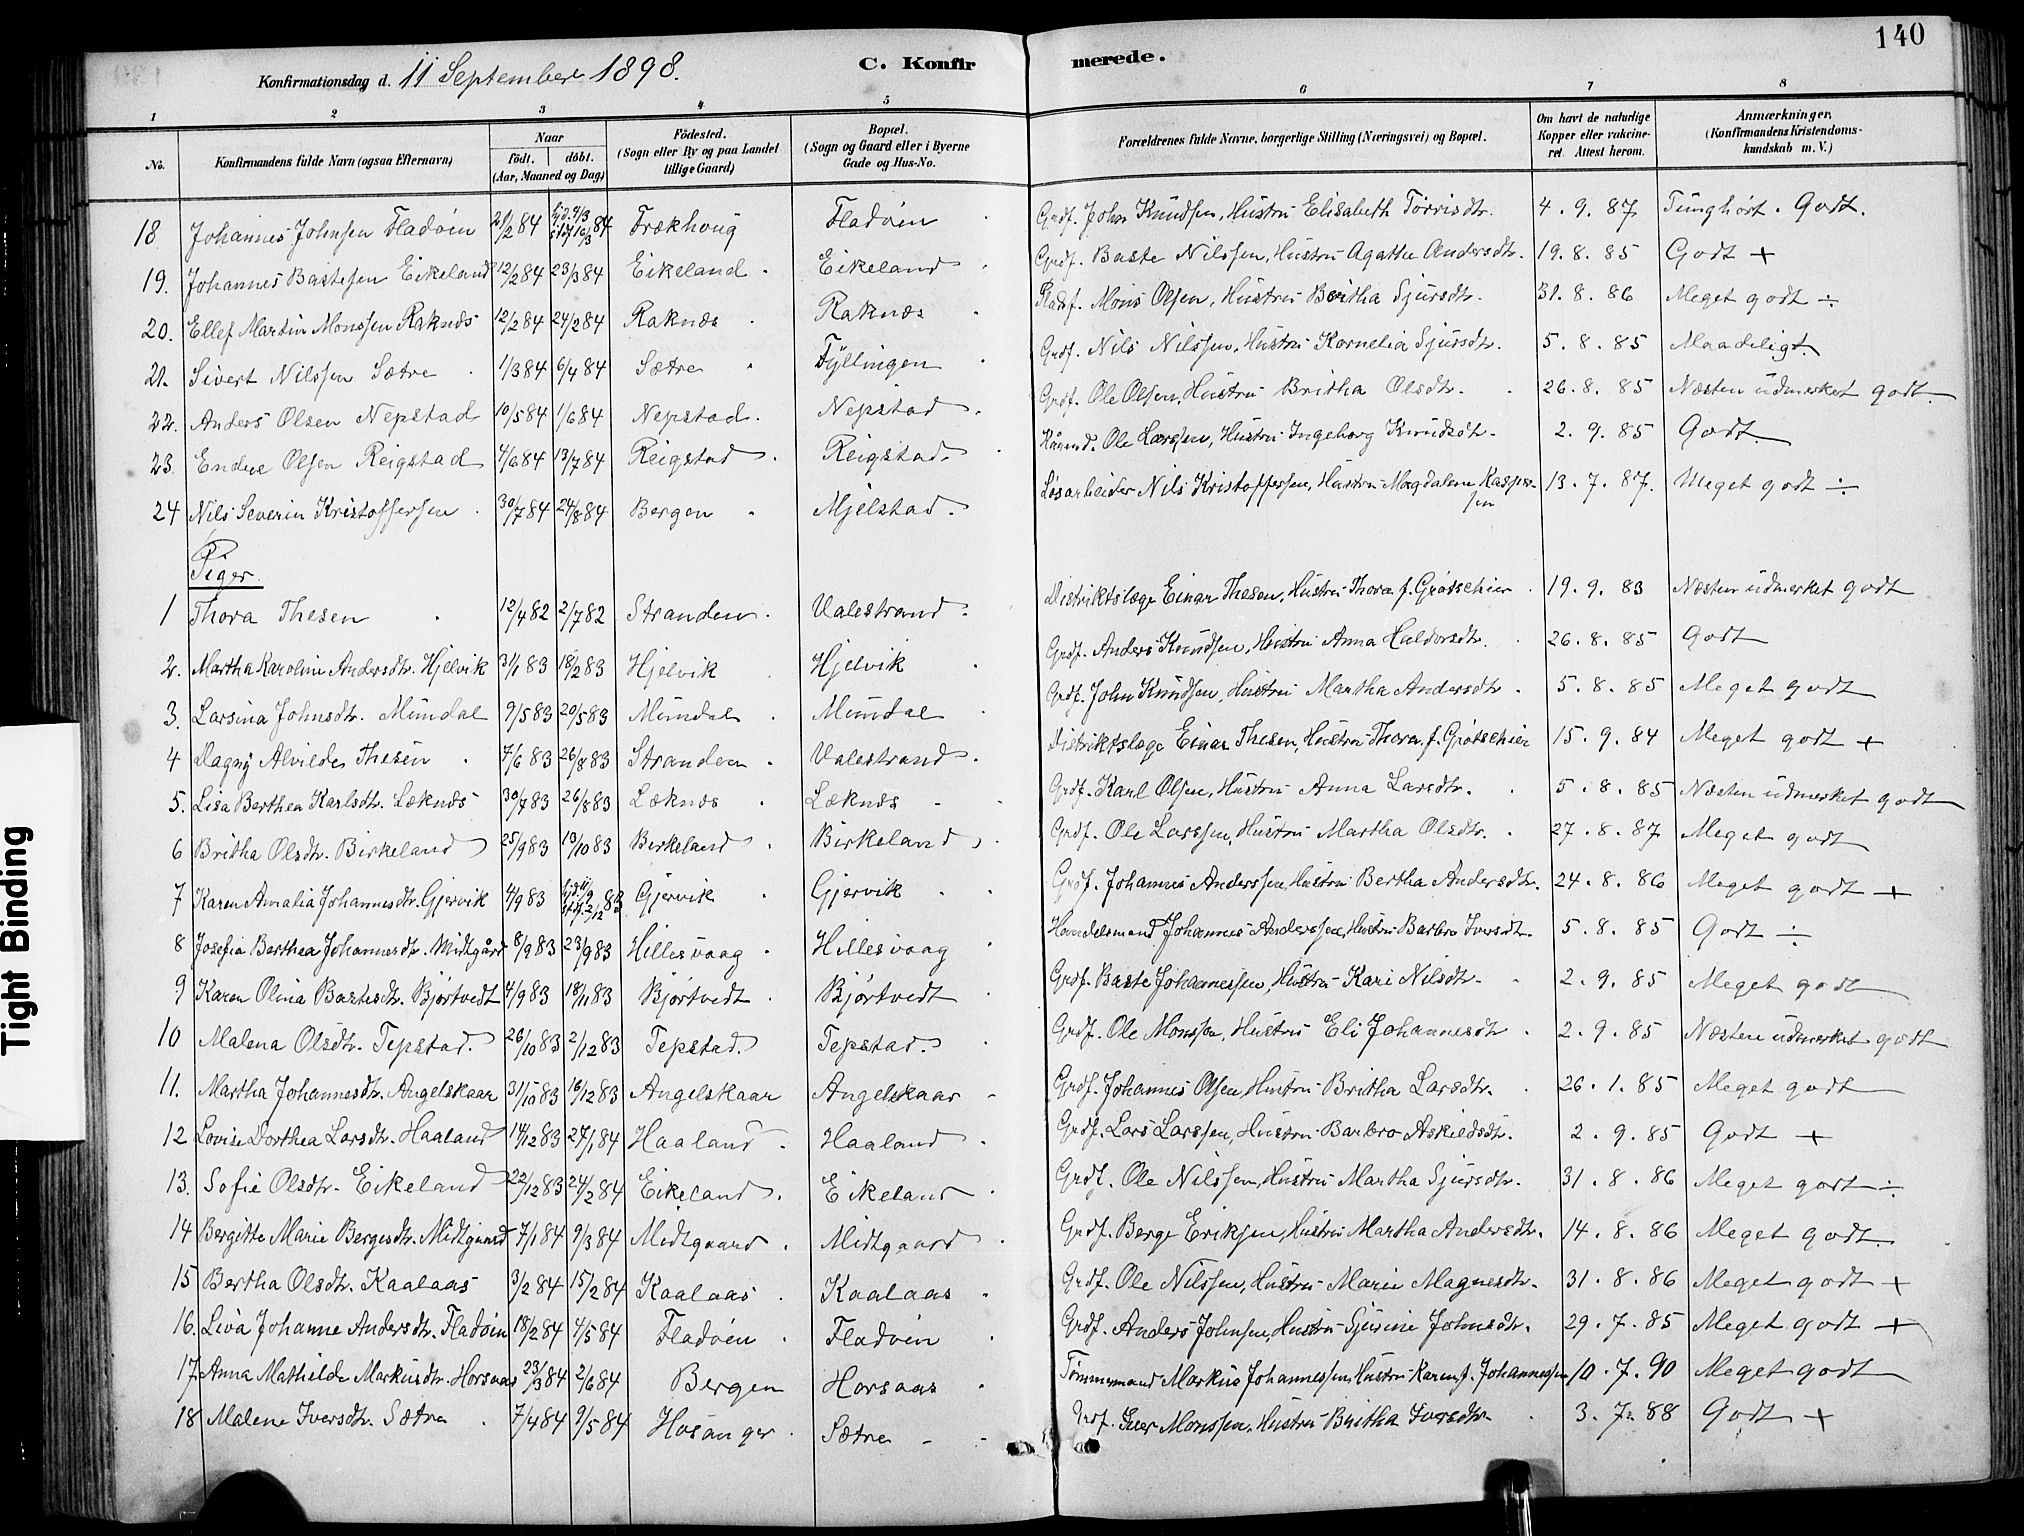 140
Konfirmationsdag d. 11 September 1898.
C. Konfirmerede.
1 2 3 4 5 6 7 8
No.
Konfirmandens fulde Navn (ogsaa Efternavn)
Naar
födt. döbt.
(Aar, Maaned og Dag)
Födested.
(Sogn eller By og paa Landet
tillige Gaard)
Bopæl.
(Sogn og Gaard eller i Byerne
Gade og Hus-No.
Forældrenes fulde Navne, borgerlige Stilling (Næringsvei) og Bopæl.
Om havt de naturlige
Kopper eller vakcine-
ret. Attest herom.
Anmærkninger.
(Konfirmandens Kristendoms-
kundskab m. V.)
18 Johannes Johnsen Fladøin 21/2 84 hjd. 4/3 84 Trækhoug Fladøin Grdf. John Knudsen, Hustru Elisabeth Torrisdtr. 4. 9. 87 Tunghört. Godt.
19. Johannes Bastesen Eikeland 12/2 84 23/3 84 Eikeland Eikeland Grdf. Baste Nilssen, Hustru Agathe Andersdtr. 19. 8. 85 Godt +
20. Ellef Martin Monssen Raknæs 12/2 84 24/2 84 Raknæs Raknæs Pladsf. Mons Olsen, Hustru Bertha Sjursdtr. 31. 8. 86 Meget godt ÷
21. Sivert Nilssen Sætre 1/3 84 6/4 84 Sætre Fyllingen Grdf. Nils Nilssen, Hustru Kornelia Sjursdtr. 5. 8. 85 Maadeligt.
22. Anders Olsen Nepstad 10/5 84 1/6 84 Nepstad. Nepstad. Grdf. Ole Olsen, Hustru Britha Olsdtr. 26. 8. 85 Næsten udmerket godt
23. Endre Olsen Reigstad 4/6 84 13/7 84 Reigstad Reigstad. Kaarmd. Ole Larssen, Hustru Ingeborg Knudsdtr. 2. 9. 85 Godt.
24 Nils Severin Kristoffersen 30/7 84 24/8 84 Bergen Mjelstad. Løsarbeider Nils Kristoffersen, Hustru Magdalene Kasper-
sen 13. 7. 87. Meget godt ÷
Piger.
1 Thora Thesen 12/4 82 2/7 82 Stranden. Valestrand. Distriktslæge Einar Thesen, Hustru Thora f. Grøtschier 19. 9. 83 Næsten udmerket godt
2. Martha Karoline Andersdtr. Hjelvik 31/1 83 18/2 83 Hjelvik Hjelvik Grdf. Anders Knudsen, Hustru Anna Haldorsdtr. 26. 8. 85 Godt
3. Larsina Johnsdtr. Mundal 9/5 83 20/5 83 Mundal Mundal Grdf. John Knudsen, Hustru Martha Andersdtr. 5. 8. 85 Meget godt
4 Dagny Alvilde Thesen 7/6 83 26/8 83 Stranden Valestrand. Distriktslæge Einar Thesen, Hustru Thora f. Grøtschier 15. 9. 84 Meget godt +
5. Lisa Berthea Karlsdtr. Læknæs 30/7 83 26/8 83 Læknæs Læknæs Grdf. Karl Olsen, Hustru Anna Larsdtr. 5. 8. 85 Næsten udmerket godt
6 Britha Olsdtr. Birkeland 25/9 83 19/10 83 Birkeland Birkeland Grdf. Ole Larssen, Hustru Martha Olsdtr. 27. 8. 87 Meget godt
7 Karen Amalia Johannesdtr. Gjervik 4/9 83 hjd. 11/9 2/12 83 Gjervik Gjervik Grdf. Johannes Anderssen, Hustru Bertha Andersdtr. 24. 8. 86 Meget godt +
8 Josefia Berthea Johannesdtr. Midtgård 8/9 83 23/9 83 Hillesvaag Hillesvaag Handelsmand Johannes Anderssen, Hustru Barbro Iversdtr. 5. 8. 85 Godt ÷
9 Karen Olina Bastesdtr. Bjørtvedt 4/9 83 18/11 83 Bjørtvedt Bjørtvedt Grdf. Baste Johannessen, Hustru Kari Nilsdtr. 2. 9. 85 Meget godt
10 Malena Olsdtr. Tepstad. 26/10 83 2/12 83 Tepstad. Tepstad. Grdf. Ole Monssen, Hustru Eli Johannesdtr. 2. 9. 85 Næsten udmerket godt
11. Martha Johannesdtr. Angelskaar 31/10 83 16/12 83 Angelskaar Angelskaar Grdf. Johannes Olsen, Hustru Britha Larsdtr. 26. 1. 85 Meget godt
12 Lovise Dorthea Larsdtr. Haaland 14/12 83 27/1 84 Haaland Haaland Grdf. Lars Larssen, Hustru Barbro Askildsdtr. 2. 9. 85 Godt +
13. Sofie Olsdtr. Eikeland 22/12 83 24/2 84 Eikeland. Eikeland Grdf. Ole Nilssen, Hustru Martha Sjursdtr. 31. 8. 86 Meget godt ÷
14 Bergitte Marie Bergesdtr. Midtgaard 7/1 84 9/3 84 Midtgaard Midtgaard Grdf. Berge Eriksen, Hustru Martha Andersdtr. 14. 8. 86 Meget godt.
15 Bertha Olsdtr. Kaalaas 3/2 84 15/2 84 Kaalaas Kaalaas Grdf. Ole Nilssen, Hustru Marie Magnesdtr. 31. 8. 86 Meget godt +
16. Liva Johanne Andersdtr. Fladøin 18/2 84 4/5 84 Fladøin Fladøin Grdf. Anders Johnsen, Hustru Sjurine Johnsdtr. 29. 7. 85 Meget godt +
17 Anna Mathilde Markusdtr. Horsaas 23/3 84 2/6 84 Bergen Horsaas Tømmermand Markus Johannessen, Hustru Karen f. Johannessen 10. 7. 90 Meget godt
18 Malene Iversdtr. Sætre 7/4 84 9/5 84 Hosanger Sætre Grdf. Iver Monssen, Hustru Britha Iversdtr. 3. 7. 88 Godt +
Tight Binding